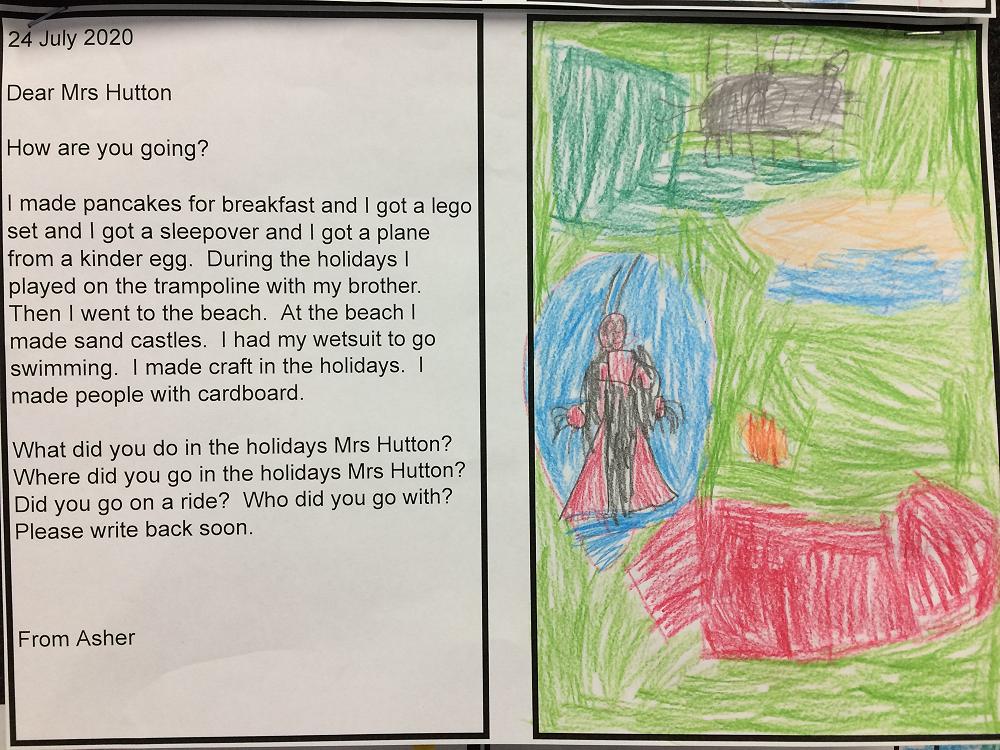 24 July 2020
Dear Mrs Hutton
How are you going?
I made pancakes for breakfast and I got a lego
set and I got a sleepover and I got a plane
from a kinder egg.  During the holidays I
played on the trampoline with my brother.
Then I went to the beach.  At the beach I
made sand castles.  I had my wetsuit to go
swimming.  I made craft in the holidays.  I
made people with cardboard.
What did you do in the holidays Mrs Hutton?
Where did you go in the holidays Mrs Hutton?
Did you go on a ride?  Who did you go with?
Please write back soon.
From Asher